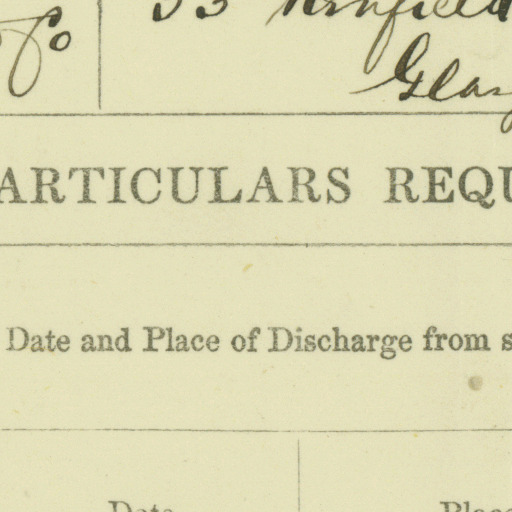 53
Glas
ARTICULARS REQU
Date and Place of Discharge from s
Date
Place